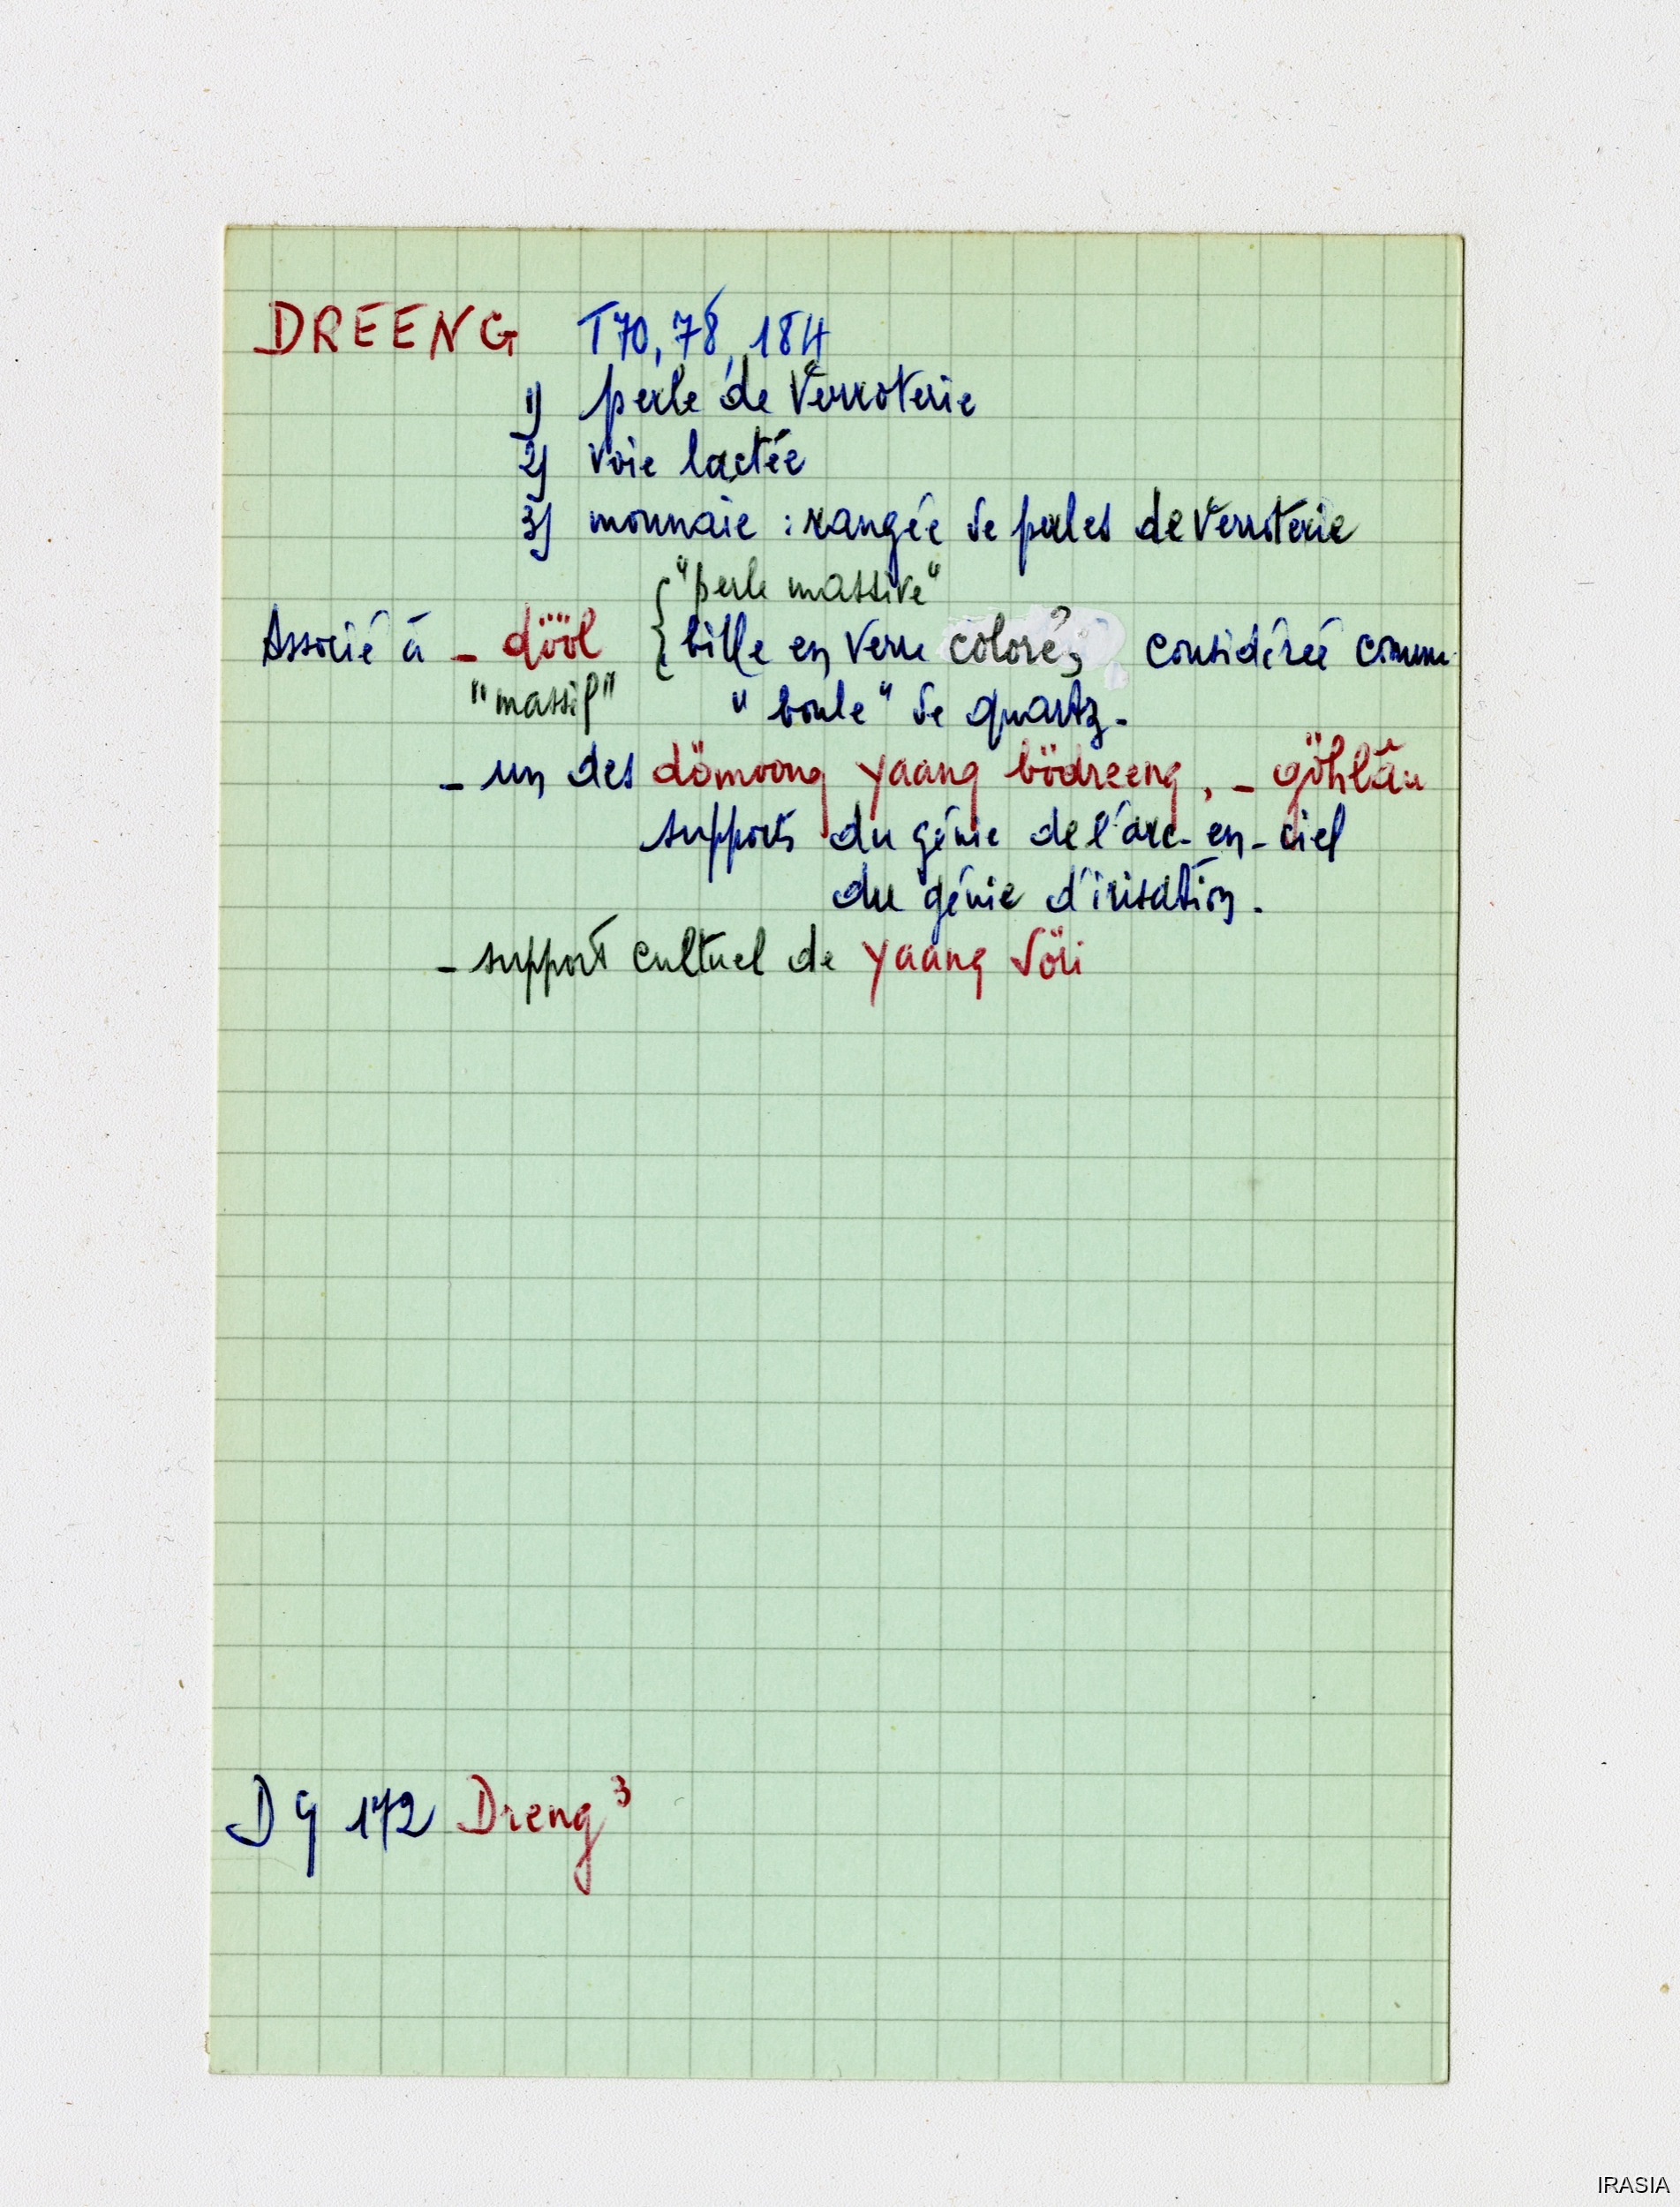 DREENG T70, 78, 184
1) perle de verroterie
2) voie lactée
3) monnaie : rangée de perles de verroterie
"perle massive"
Associé à _ dööl { bille en verre coloré, considérée comme
"massif" "boule" de quartz.
_ un des dömoong yaang bödreeng, _ göhlâu
supports du génie de l'arc-en-ciel
du génie d'irisation.
_ support cultuel de yaang Söri
D 9 172 Dreng³
IRASIA